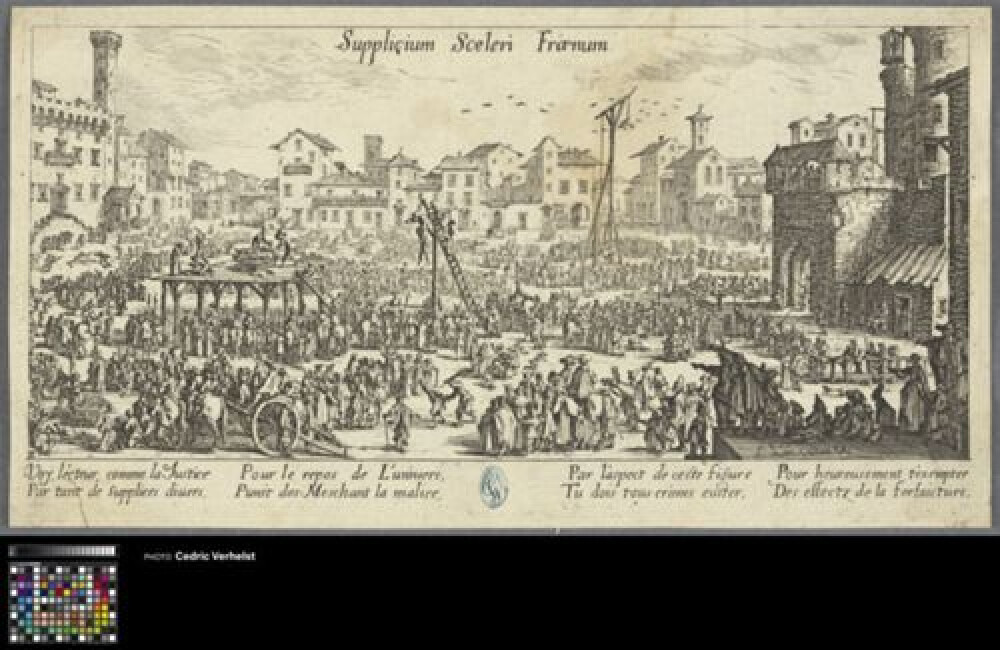 Supplicium Sceleri Frœnum
Voy lecteur, comme la Justice
Par tant de supplices diuers,
Pour le repos de L'univers,
Punit des Meschant la malice,
Par l'aspect de ceste figure
Tu dois tous crimes euiter,
Pour heureusement t'exempter
Des effectz de la forfaicture.
PHOTO Cedric Verhelst